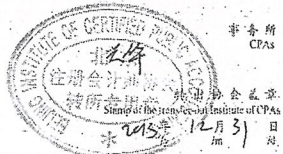 事务所
CPAs
BEIJING INSTITUTE OF CERTIFIED PUBLIC ACCO
北
注册会计师
转所专用章
转出协会盖章
Stamp of the transfer-out Institute of CPAs
2013年 12月 31日
/y /m /d